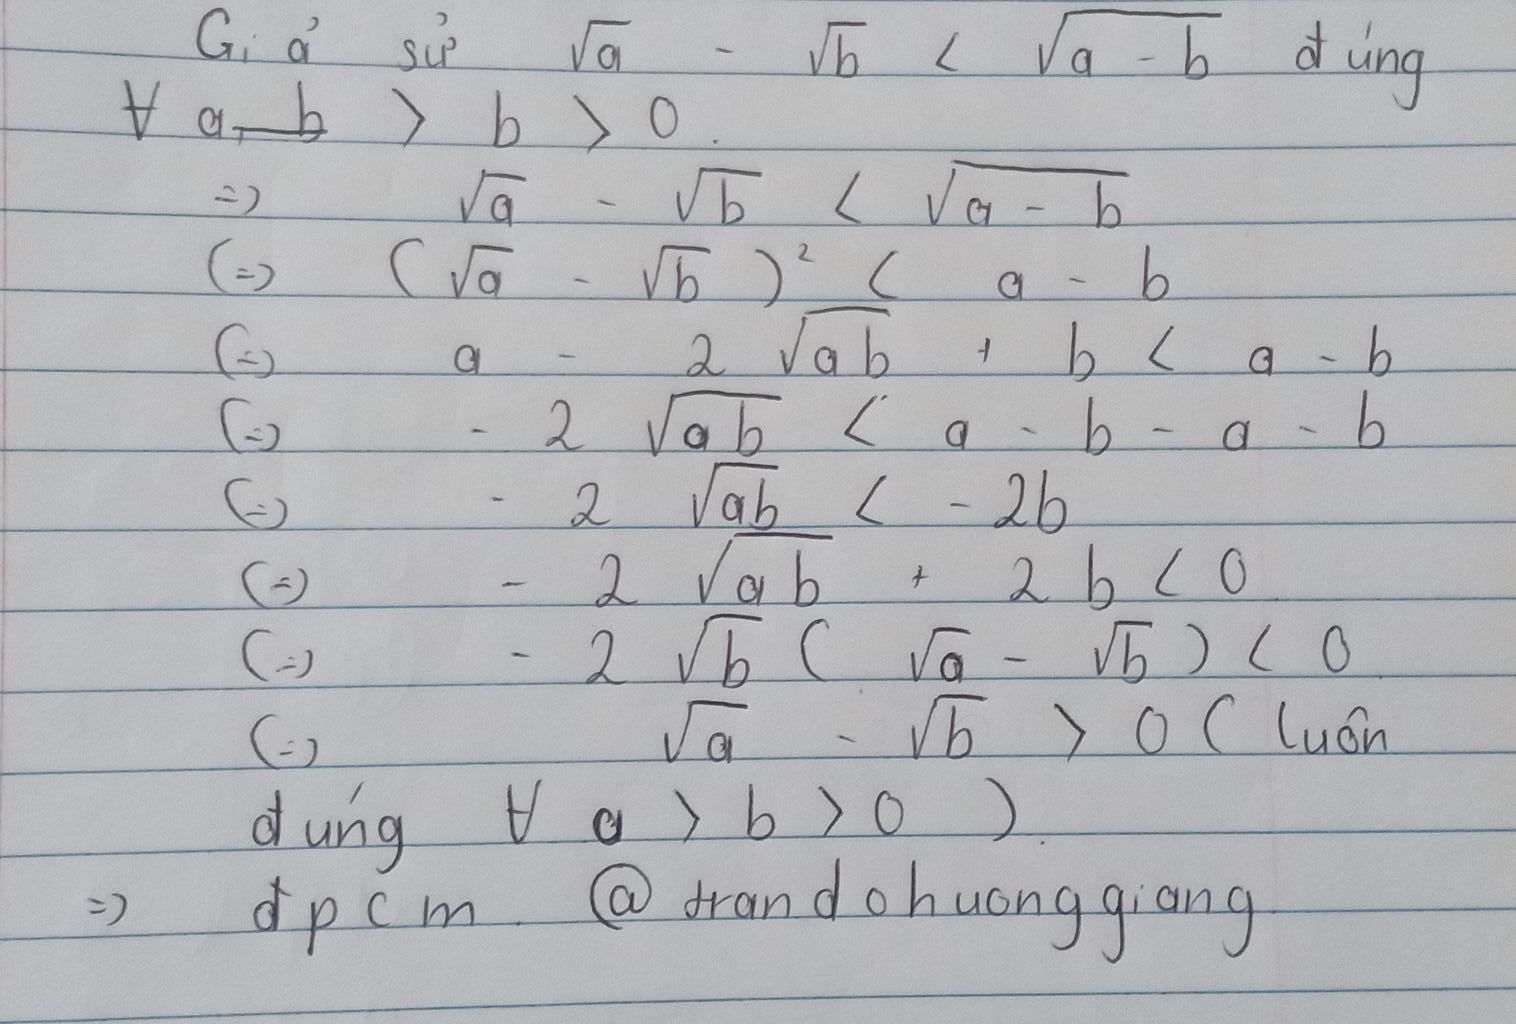 Giả sử √a - √b < √(a - b) đúng
∀ a, b > b > 0.
=> √a - √b < √(a - b)
(=) (√a - √b)² < a - b
(=) a - 2√(ab) + b < a - b
(=) - 2√(ab) < a - b - a - b
(=) - 2√(ab) < - 2b
(=) - 2√(ab) + 2b < 0
(=) - 2√b (√a - √b) < 0
(=) √a - √b > 0 ( luôn
đúng ∀ a > b > 0 ).
=> đpcm. @trandohuonggiang